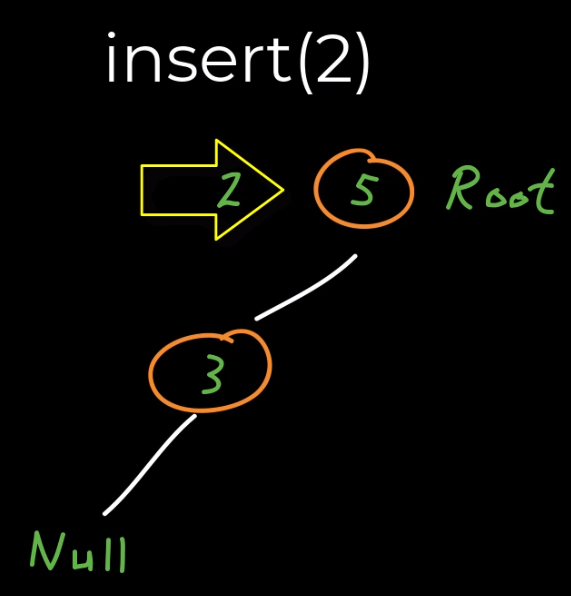 insert(2)
2 5 Root
3
Null